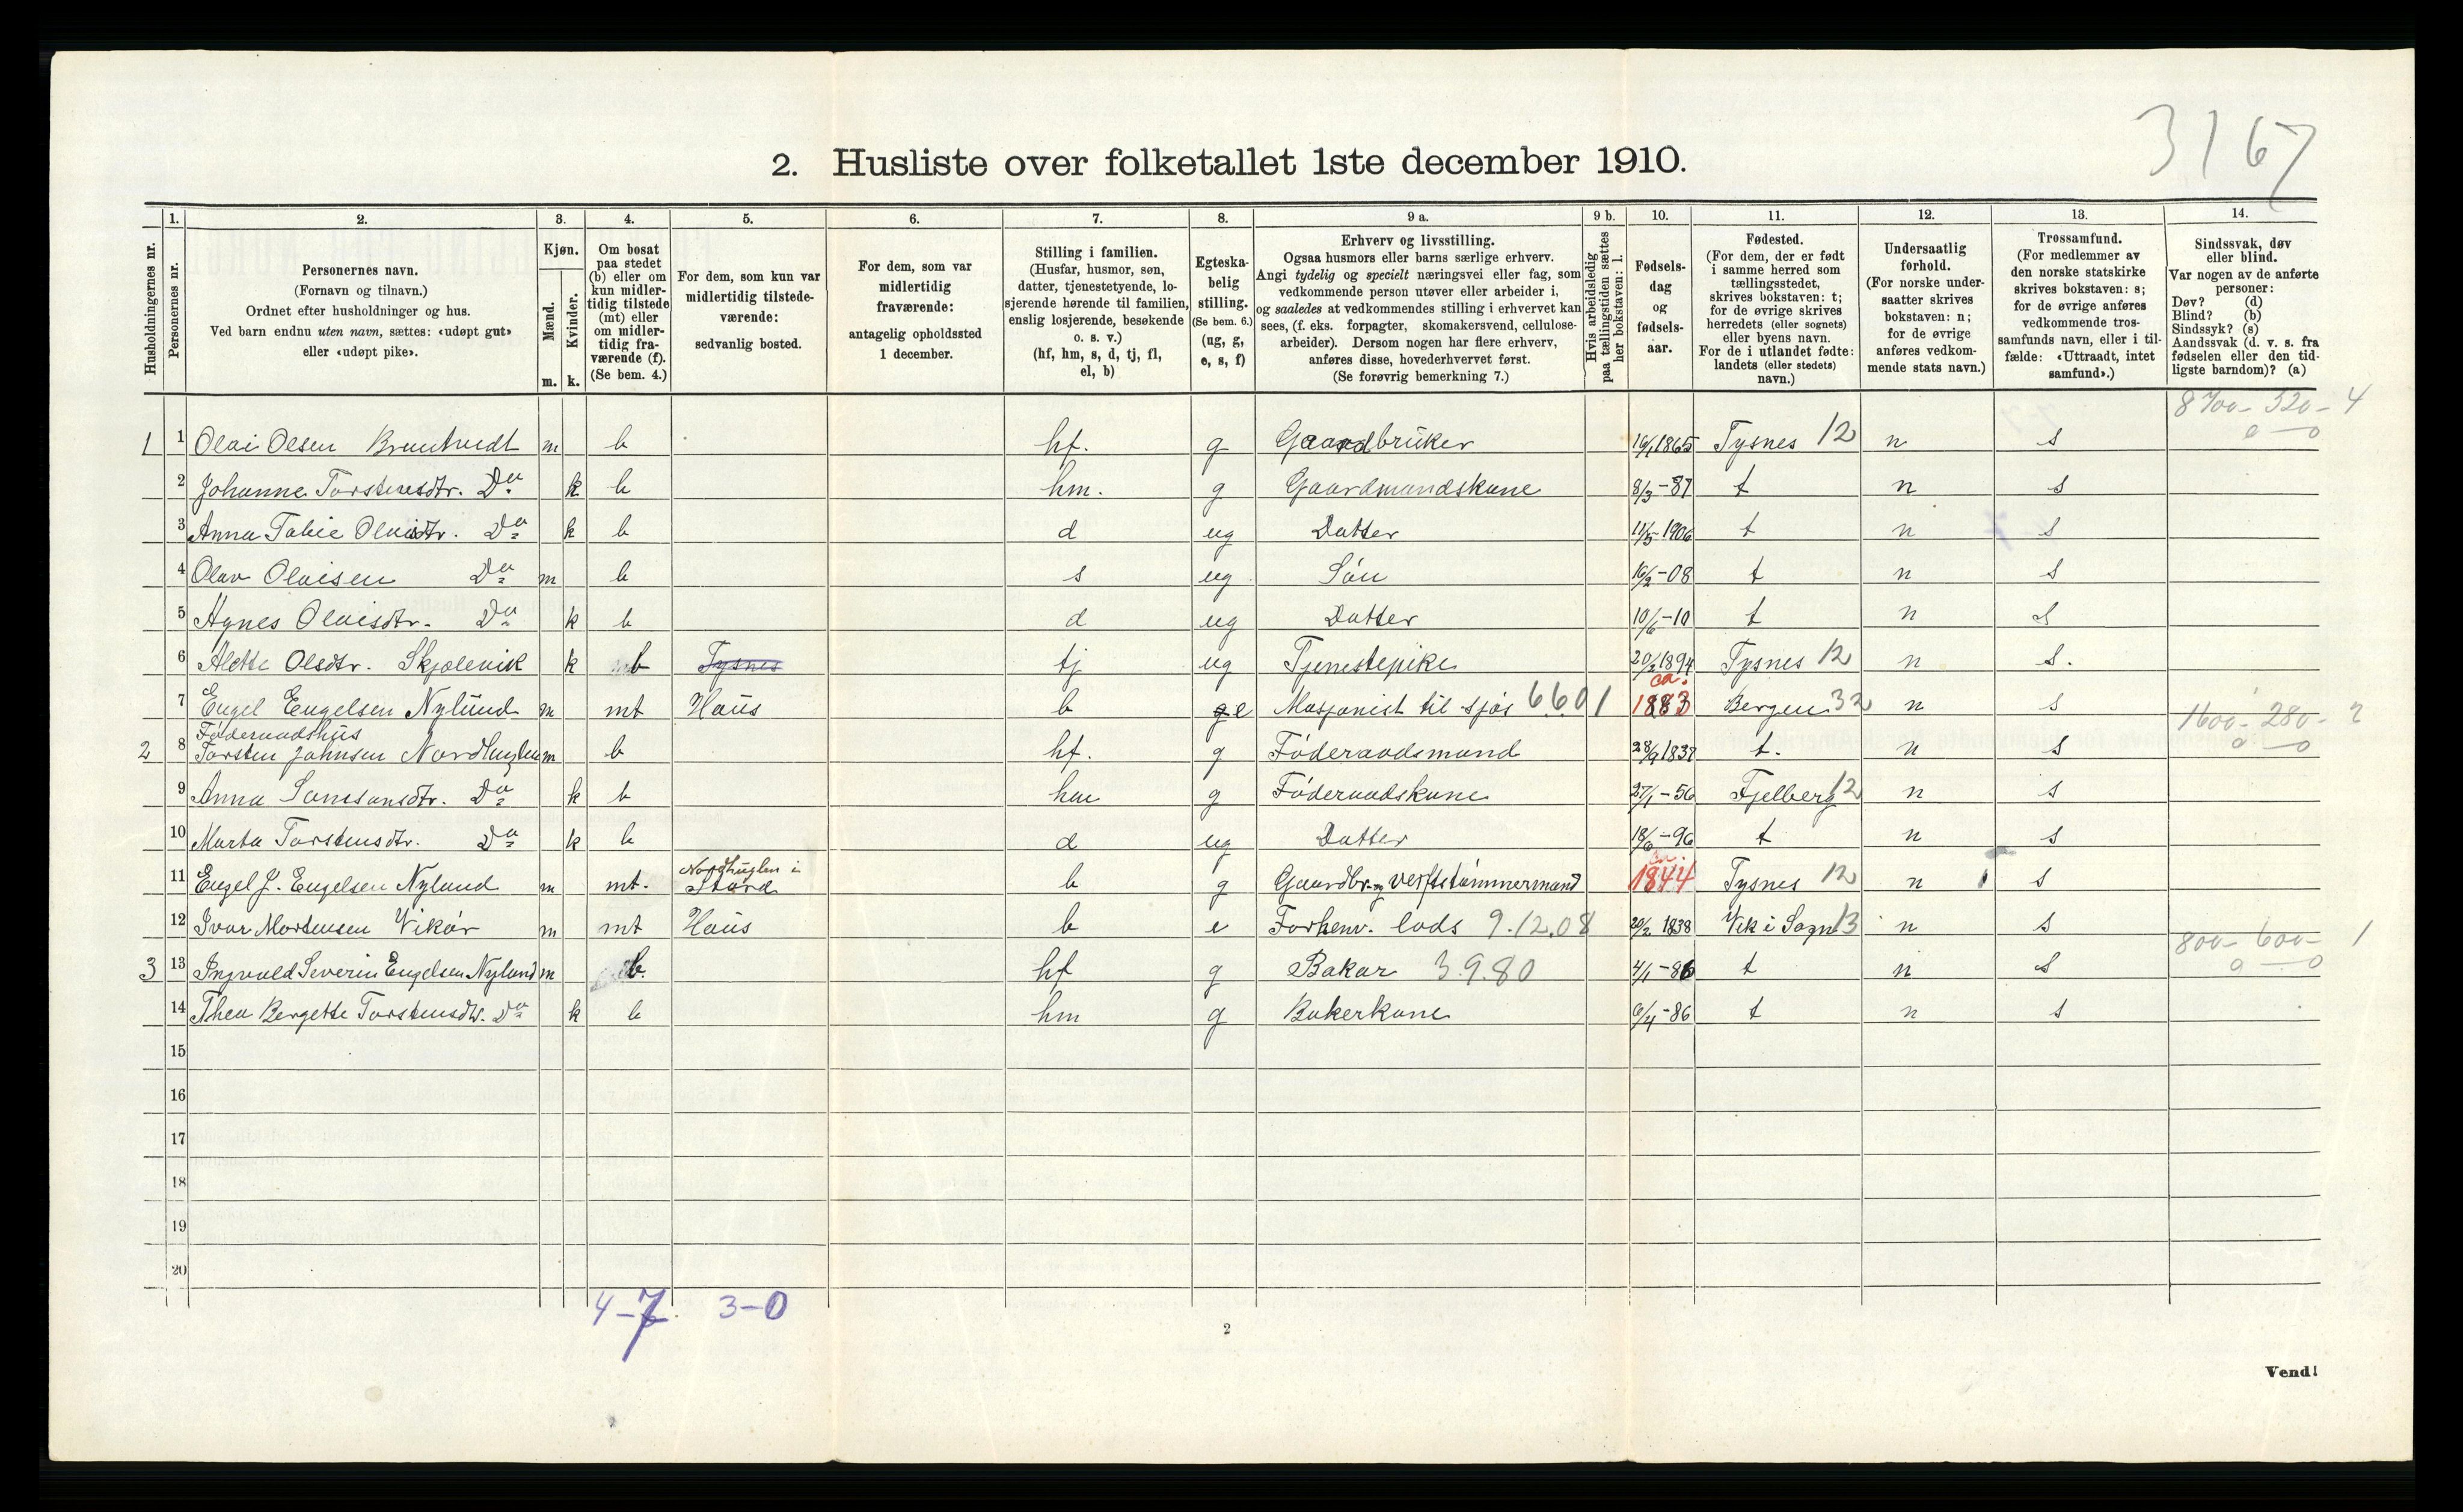 3167
2. Husliste over folketallet 1ste december 1910.
1. 2. 3. 4. 5. 6. 7. 8. 9 a. 9 b. 10. 11. 12. 13. 14.
Husholdningernes nr.
Personernes nr.
Personernes navn.
(Fornavn og tilnavn.)
Ordnet efter husholdninger og hus.
Ved barn endnu uten navn, sættes: «udøpt gut»
eller «udøpt pike».
Kjøn.
Mænd.
Kvinder.
m. k.
Om bosat
paa stedet
(b) eller om
kun midler-
tidig tilstede
(mt) eller
om midler-
tidig fra-
værende (f).
(Se bem. 4.)
For dem, som kun var
midlertidig tilstede-
værende:
sedvanlig bosted.
For dem, som var
midlertidig
fraværende:
antagelig opholdssted
1 december.
Stilling i familien.
(Husfar, husmor, søn,
datter, tjenestetyende, lo-
sjerende hørende til familien,
enslig losjerende, besøkende
o. s. v.)
(hf, hm, s, d, tj, fl,
el, b)
Egteska-
belig
stilling.
(Se bem. 6.)
(ug, g,
e, s, f)
Erhverv og livsstilling.
Ogsaa husmors eller barns særlige erhverv.
Angi tydelig og specielt næringsvei eller fag, som
vedkommende person utøver eller arbeider i,
og saaledes at vedkommendes stilling i erhvervet kan
sees, (f. eks. forpagter, skomakersvend, cellulose-
arbeider). Dersom nogen har flere erhverv,
anføres disse, hovederhvervet først.
(Se forøvrig bemerkning 7.)
Hvis arbeidsledig
paa tællingstiden sættes
her bokstaven: l.
Fødsels-
dag
og
fødsels-
aar.
Fødested.
(For dem, der er født
i samme herred som
tællingsstedet,
skrives bokstaven: t;
for de øvrige skrives
herredets (eller sognets)
eller byens navn.
For de i utlandet fødte:
landets (eller stedets)
navn.)
Undersaatlig
forhold.
(For norske under-
saatter skrives
bokstaven: n;
for de øvrige
anføres vedkom-
mende stats navn.)
Trossamfund.
(For medlemmer av
den norske statskirke
skrives bokstaven: s;
for de øvrige anføres
vedkommende tros-
samfunds navn, eller i til-
fælde: «Uttraadt, intet
samfund».)
Sindssvak, døv
eller blind.
Var nogen av de anførte
personer:
Døv? (d)
Blind? (b)
Sindssyk? (s)
Aandssvak (d. v. s. fra
fødselen eller den tid-
ligste barndom)? (a)
8700- 320- 4
0 - 0
1 1 Olai Olsen m b hf. g Gaardbruker 16/1 1865 Tysnes 12 n s
2 Johanne Torstensdtr. Do k b hm. g Gaardmandskone 8/3 -87 t n s
3 Anna Tobie Olaisdtr. Do k b d ug Datter 11/5 1906 t n s
4 Olav Olaisen Do m b s ug Søn 16/2 -08 t n s
5 Agnes Olaisdtr. Do k b d ug Datter 10/6 -10 t n s
6 Alette Olsdtr. Skjolevik k b Tysnes tj ug Tjenestepike 20/3 1894 Tysnes 12 n s.
7 Engel Engelsen Nylund m mt Haus b e Masjonist til sjøs 6601 ca. 1883 Bergen 32 n s
1600- 280- 2
0 - 0
Føderaadshus
2 8 Torsten Johnsen Nordhuglen m b hf. g Føderaadsmand 28/9 1837 t. n s
9 Anna Samsonsdtr. Do k b hm g Føderaadskone 27/1 -56 Fjelberg 12 n s
10 Marta Torstensdtr. Do k b d ug Datter 18/6 -96 t n s
11 Engel J. Engelsen Nylund m mt. Nordhuglen i Stord b g Gaardbr. og verftstømmermand ca. 1844 Tysnes 12 n s
12 Ivar Mortensen Vikør m mt Haus b e Forhenv. lods 9.12.08 20/2 1838 Vik i Sogn 13 n s
800- 600- 1
0 - 0
3 13 Ingvald Severin Engelsen Nylund m b. hf g Bakar 3.9.80 4/1 -86 t n s
14 Thea Bergette Torstensdtr. Do k b hm g Bakerkone 6/4 -86 t n s
15
16
17
18
19
20
4-7. 3-0
2
Vend!